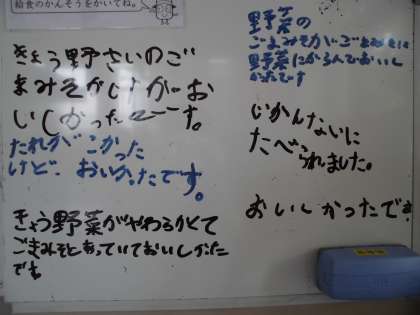 給食のかんそうをかいてね。
きょう野さいのご
まみそがけがお
いしかったでーす。
たれがこかった
けど、おいかったです。
きょう野菜がやわらかくて
ごまみそとあっていておいしかった
です
野菜の
ごまみそがごまみそは
野菜にからんでおいし
かったです
じかんないに
たべられました。
おいしかったです